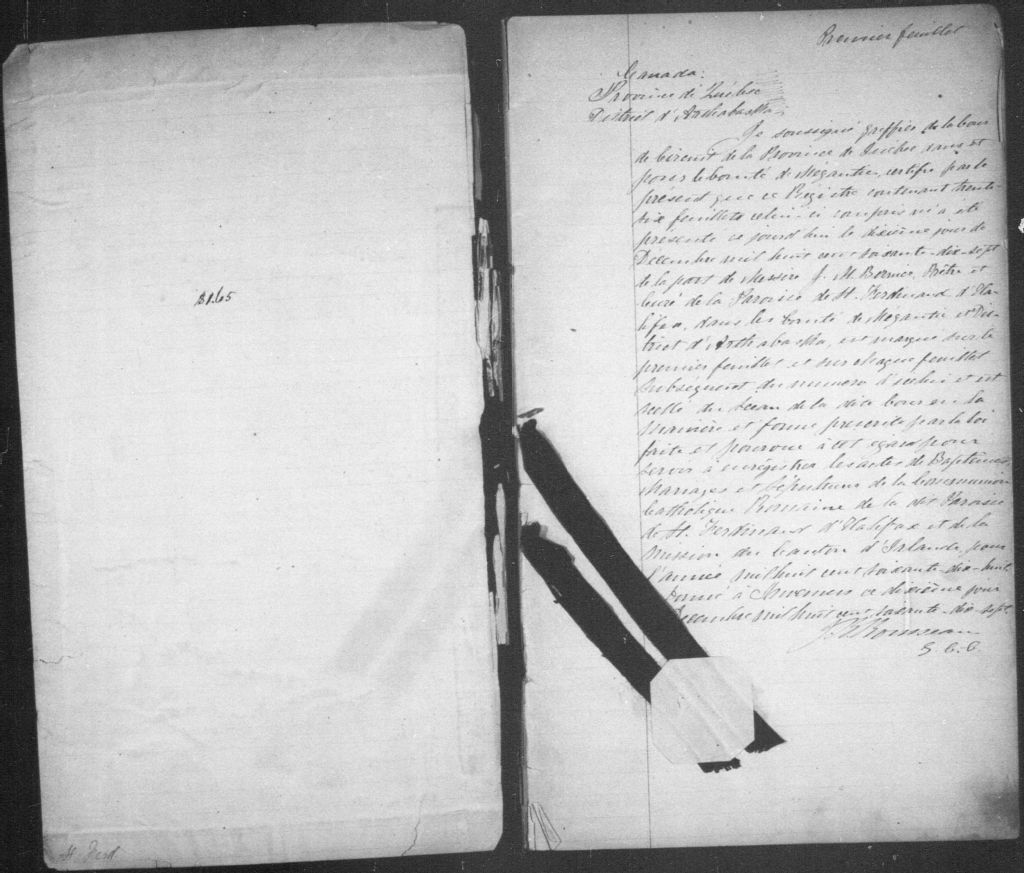 St. Ferd.
Premier feuillet
Canada:
Province de Québec
District d'Arthabaska
Je soussigné greffier de la Cour
de Circuit de la Province de Quebec dans et
pour le Comté de Mégantic, certifie par le
présent que ce Régistre contenant trente
six feuillets celui-ci compris m'a été
présenté ce jourd'hui le dixième jour de
Decembre mil huit cent soixante-dix-sept
de la part de Messire J. M. Bernier, Prêtre et
Curé de la Paroisse de St. Ferdinand d'Ha-
lifax, dans les Comté de Megantic et Dis-
trict d'Arthabaska, est marqué sur le
premier feuillet et sur chaque feuillet
subsequent du numero d'icelui et est
scellé du Sceau de la dite Cour en la
Manière et forme prescrite par la loi
faite et pourvue à cet égard pour
servir à enrégistrer les actes de Baptêmes,
Mariages et Sépultures de la Communion
Catholique Romaine de la dit Paroisse
de St. Ferdinand d'Halifax et de la
Mission du Canton d'Irlande, pour
l'année mil huit cent soixante dix-huit.
Donné à Inverness ce dixième jour
Decembre mil huit cent soixante-dix-sept
Rousseau
G. C. C.